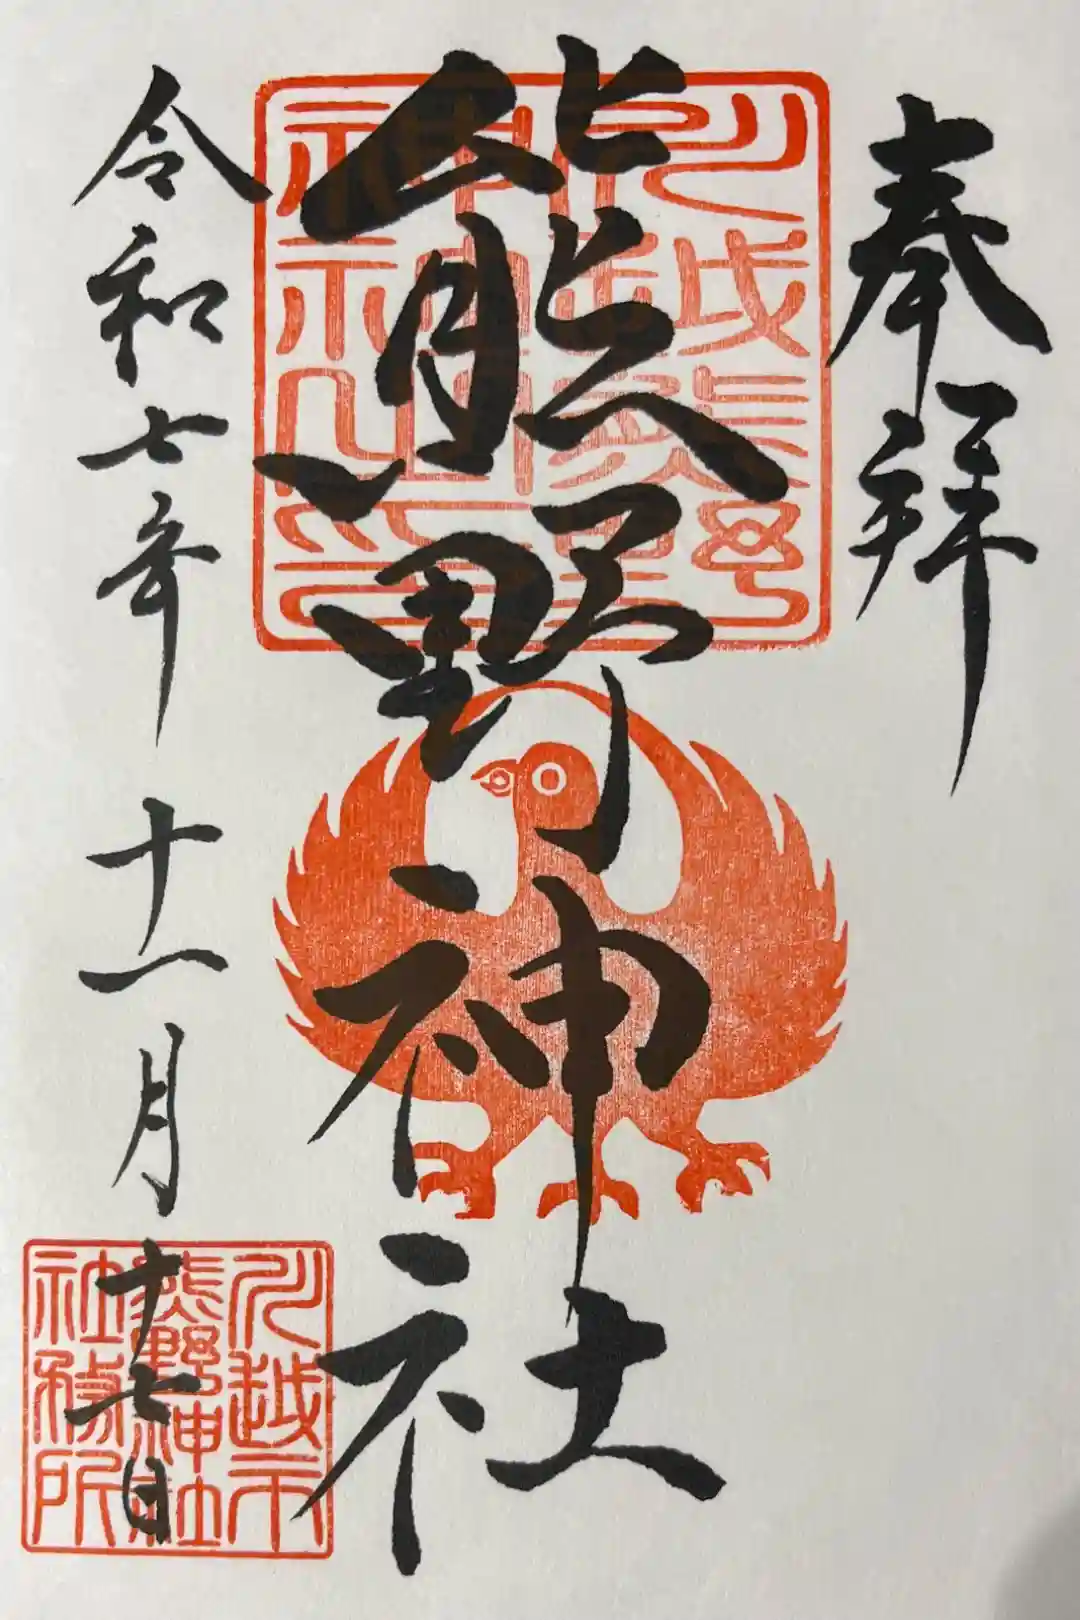 奉拝
熊野神社
令和七年十一月十七日
川越市
熊野神社
社務所